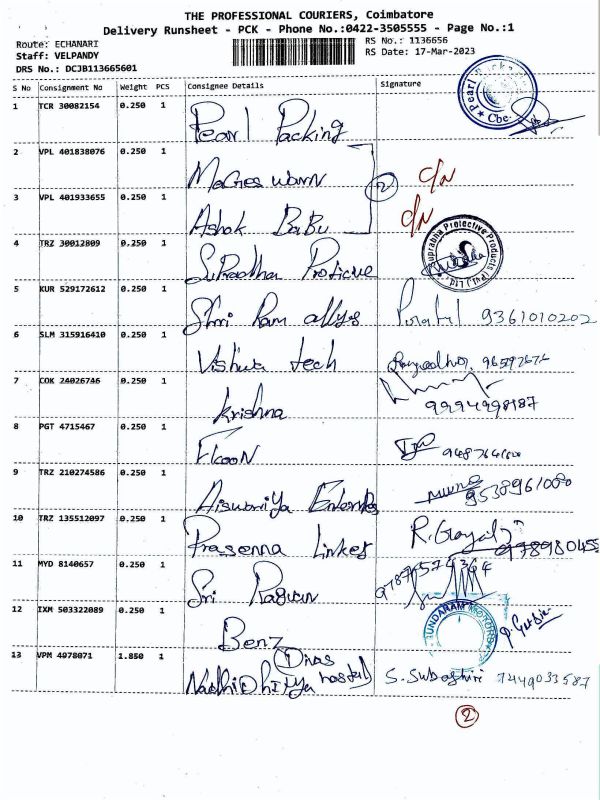 THE PROFESSIONAL COURIERS, Coimbatore
Delivery Runsheet - PCK - Phone No.:0422-3505555 - Page No.:1
Route: ECHANARI
Staff: VELPANDY
DRS No.: DCJB113665601
RS No.: 1136656
RS Date: 17-Mar-2023
S No Consignment No Weight PCS Consignee Details Signature
1 TCR 30082154 0.250 1 Pearl Packing
Pearl Cbe
2 VPL 401838076 0.250 1 MaGeswarn 2 C/N
3 VPL 401933655 0.250 1 Ashok BaBu C/N
4 TRZ 30012809 0.250 1 SuPradha Proticve
Suprabha Protective Products (P) Ltd
5 KUR 529172612 0.250 1 Shri Ram allys 9361010202
6 SLM 315916410 0.250 1 Vishwa tech
7 COK 24026746 0.250 1 krishna 9994998187
8 PGT 4715467 0.250 1 Fkoon
9 TRZ 210274586 0.250 1 Aiswariya 9538961080
10 TRZ 135512097 0.250 1 Prasenna Linkes 9789180455
11 MYD 8140657 0.250 1 Sri Raguvn 9787574364
12 IXM 503322089 0.250 1 Benz
SUNDARAM MOTORS
13 VPM 4978071 1.850 1 hostel S. Subashiri 7449033587
2